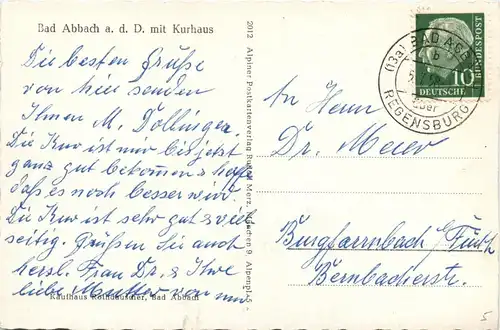 Bad Abbach a. d. D. mit Kurhaus
Die besten Grüße
von hier senden
Ihnen M. Dollinger.
Die Kur ist mir bis jetzt
ganz gut bekommen & hoff
daß es noch besser wird.
Die Kur ist sehr gut & viel
seitig. Grüßen Sie auch
herzl. Frau Dr. & Ihre
liebe Mutter von mir
Kaufhaus Rothdauscher, Bad Abbach
2012 Alpiner Postkartenverlag Rudolf Merz, München 9, Alpenpl. 5
An Herrn
Dr. Meier
Burgfarrnbach b/ Fürth
Bernbacherstr.
(13a) BAD ABB
b
über
REGENSBURG
10
DEUTSCHE
BUNDESPOST
5